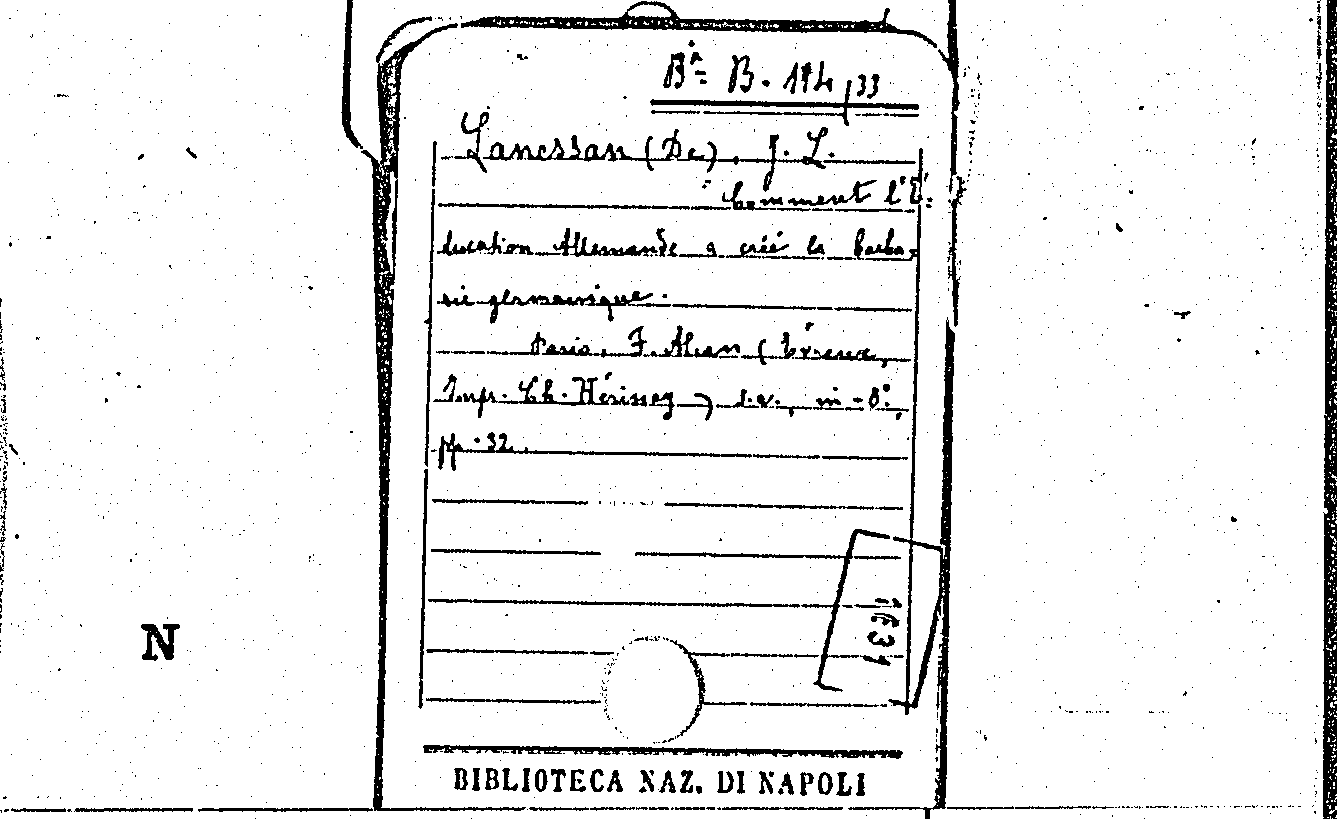 Bᵃ B. 174/33
Lanessan (De), J. L.
Comment l'É=
ducation Allemande a créé la barba=
rie germanique.
Paris, F. Alcan (Évreux,
Impr. Ch. Hérissey) s.a., in-8°,
pp. 32.
1631
N
BIBLIOTECA NAZ. DI NAPOLI